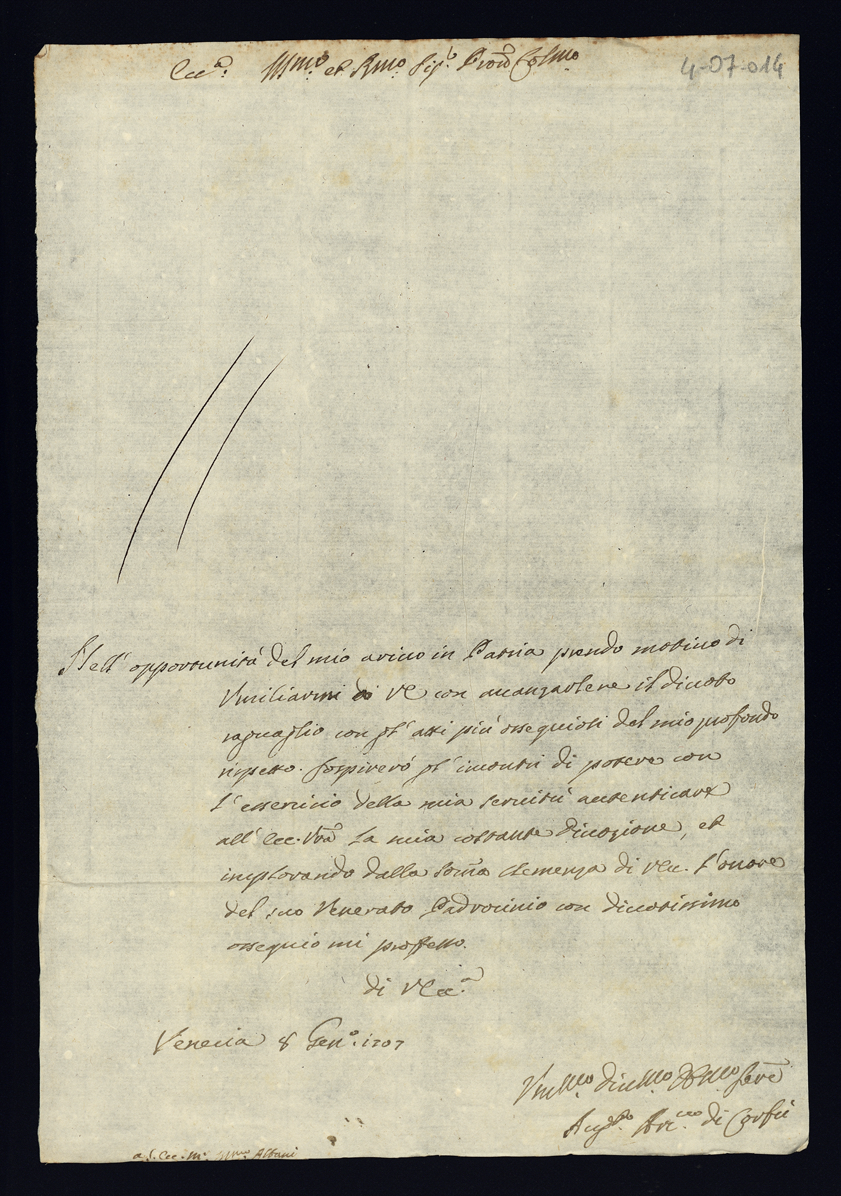 Ecc.ª Ill.mo et R.mo Sig.r Pron Col.mo
4-07-014
Nell' opportunità del mio arivo in Patria prendo motivo di
Umiliarmi VE con avanzarlene il divoto
raguaglio con gl' atti più ossequiosi del mio profondo
rispetto. Sospirerò gl' incontri di potere con
l' essercizio della mia servitù autenticare
all' Ecc. Vra la mia costante divozione, et
implorando dalla soma clemenza di VEc. l' onore
del suo Venerato Padrocinio con divotissimo
ossequio mi professo.
di VEcc.ª
Venezia 8 Gen.º 1707
Um.mo div.mo Obl.mo Sere
Aug.º Arc.vo di Corfù
a S. Ecc. M.r Albani